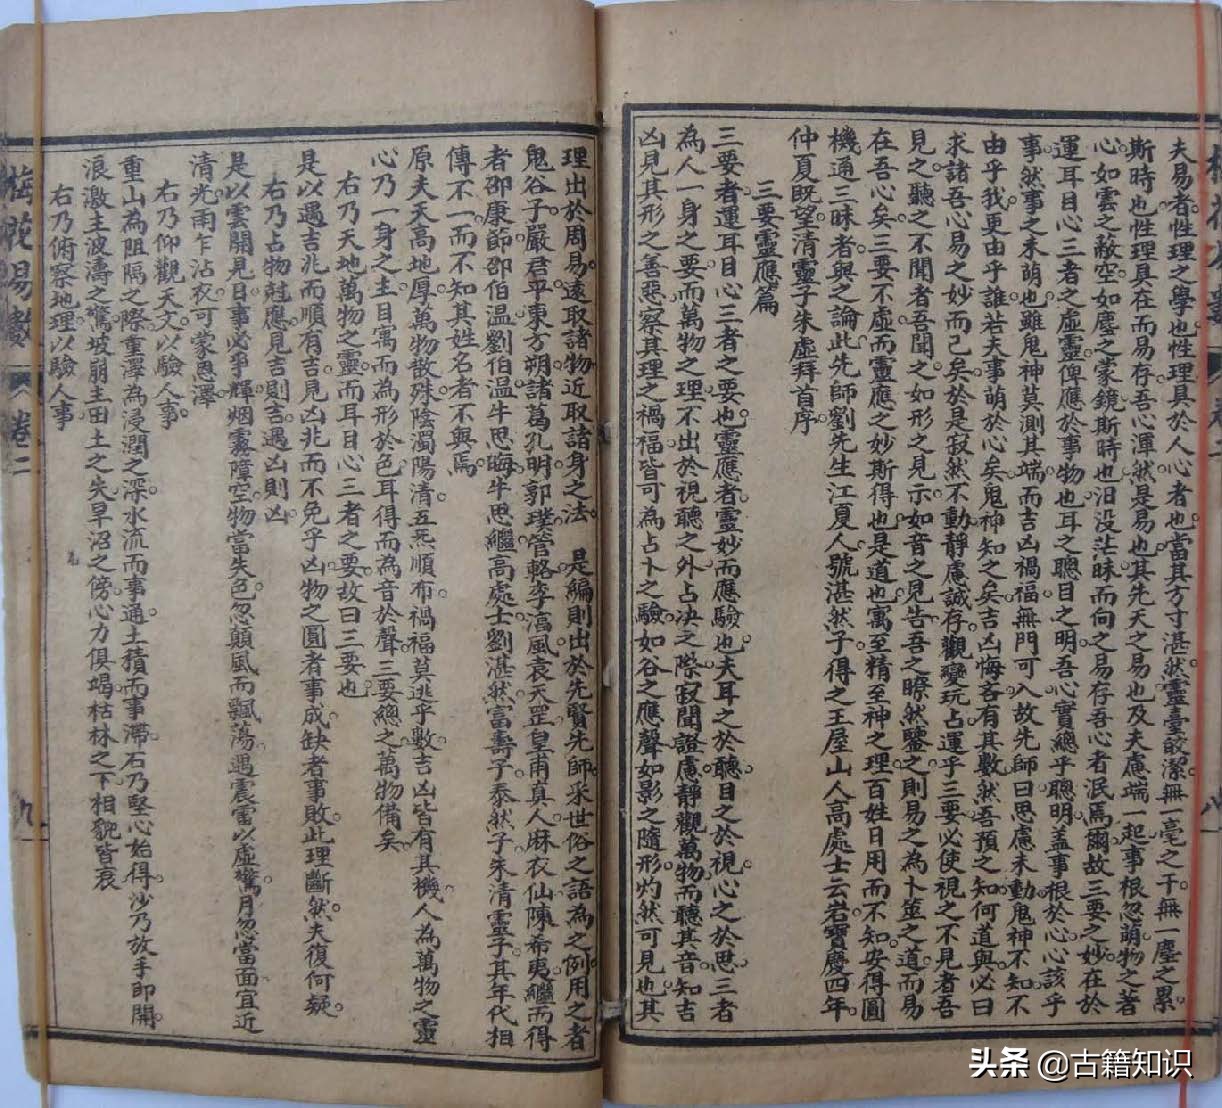 夫易者性理之學也性理具於人心者也當其方寸湛然靈臺皎潔無一毫之干無一塵之累
斯時也性理具在而易存吾心渾然是易也其先天之易也及夫慮端一起事根忽萌物之著
心如雲之蔽空如塵之蒙鏡斯時也汩没茫昧而向之易存吾心者泯焉爾故三要之妙在於
運耳目心三者之虛靈俾應於事物也耳之聰目之明吾心實總乎聰明蓋事根於心心該乎
事然事之未萌也雖鬼神莫測其端而吉凶禍福無門可入故先師曰思慮未動鬼神不知不
由乎我更由乎誰若夫事萌於心矣鬼神知之矣吉凶悔吝有其數然吾預之知何道與必曰
求諸吾心易之妙而已矣於是寂然不動靜慮誠存觀變玩占運乎三要必使視之不見者吾
見之聽之不聞者吾聞之如形之見示如音之見告吾之瞭然鑒之則易之為卜筮之道而易
在吾心矣三要不虛而靈應之妙斯得也是道也寓至精至神之理百姓日用而不知安得圓
機通三昧者與之論此先師劉先生江夏人號湛然子得之王屋山人高處士云岩寶慶四年
仲夏既望清靈子朱虛拜首序
三要靈應篇
三要者運耳目心三者之要也靈應者靈妙而應驗也夫耳之於聽目之於視心之於思三者
為人一身之要而萬物之理不出於視聽之外占决之際寂聞證慮靜觀萬物而聽其音知吉
凶見其形之善惡察其理之禍福皆可為占卜之驗如谷之應聲如影之隨形灼然可見也其
理出於周易遠取諸物近取諸身之法 是編則出於先賢先師采世俗之語為之例用之者
鬼谷子嚴君平東方朔諸葛孔明郭璞管輅李淳風袁天罡皇甫真人麻衣仙陳希夷繼而得
者邵康節邵伯温劉伯温牛思晦牛思繼高處士劉湛然富壽子泰然子朱清靈子其年代相
傳不一而不知其姓名者不與焉
原夫天高地厚萬物散殊陰濁陽清五炁順布禍福莫逃乎數吉凶皆有其機人為萬物之靈
心乃一身之主目寓而為形於色耳得而為音於聲三要總之萬物備矣
右乃天地萬物之靈而耳目心三者之要故曰三要也
是以遇吉兆而順有吉見凶兆而不免乎凶物之圓者事成缺者事敗此理斷然夫復何疑
右乃占物尅應見吉則吉遇凶則凶
是以雲開見日事必乎輝烟霧障空物當失色忽顛風而飄蕩遇震雷以虛驚月忽當面宜近
清光雨乍沾衣可蒙恩澤
右乃仰觀天文以驗人事
重山為阻隔之際重澤為浸潤之深水流而事通土積而事滯石乃堅心始得沙乃放手即開
浪激主波濤之驚坡崩主田土之失旱沼之傍心力俱竭枯林之下相貌皆衰
右乃俯察地理以驗人事
卷二
九
头条 @古籍知识